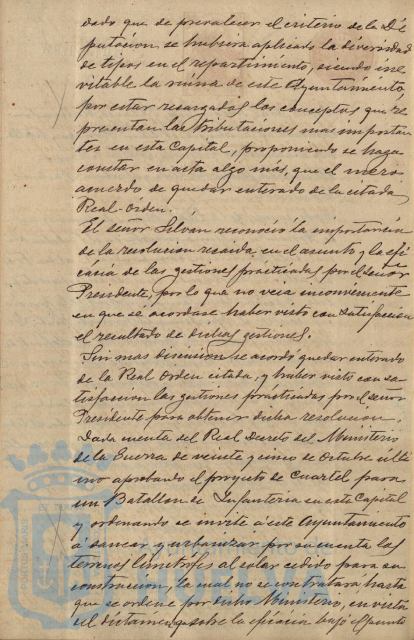 dado que de prevalecer el criterio de la Di
putacion, se hubiera aplicado la diversidad
de tipos en el repartimiento, siendo ine
vitable la ruina de este Ayuntamiento,
por estar recargados los conceptos que re
presentan las tributaciones mas importan
tes en esta Capital, proponiendo se haga
constar en acta algo más, que el mero
acuerdo de quedar enterado de la citada
Real-orden.
El señor Silván reconoció la importancia
de la resolucion recaida en el asunto y la efi
cacia de las gestiones practicadas por el señor
Presidente, por lo que no veia inconveniente
en que se acordase haber visto con satisfaccion
el resultado de dichas gestiones.
Sin mas discusion se acordó quedar enterado
de la Real orden citada, y haber visto con sa
tisfaccion las gestiones practicadas por el señor
Presidente para obtener dicha resolucion.
Dada cuenta del Real Decreto del Ministerio
de la Guerra de veinte y cinco de Octubre últi
mo aprobando el proyecto de Cuartel para
un Batallon de Infanteria en esta Capital
y ordenando se invite a este Ayuntamiento
á sanear y urbanizar por su cuenta los
terrenos limítrofes al solar cedido para su
construccion, la cual no se contratará hasta
que se ordene por dicho Ministerio, en vista
del dictamen, sobre la eficacia bajo el punto